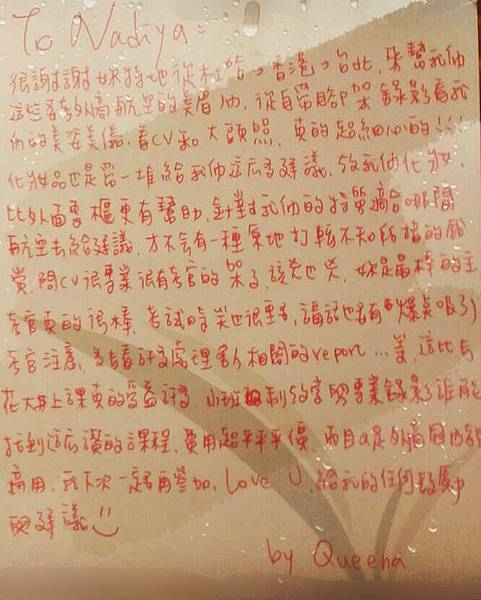 To Nadiya:
很謝謝妳特地從杜哈→香港→台北，來幫我們
這些考外商航空的美眉們，從自帶腳架錄影看我
們的美姿美儀，看CV和大頭照，真的超細心的!!!
化妝品也是買一堆給我們這麼多建議，教我們化妝，
比外面專櫃更有幫助，針對我們的特質適合哪間
航空去給建議，才不會有一種原地打轉不知所措的
感覺，問CV很專業很有考官的架子，該兇也兇，妳是最棒的主
考官真的很棒，考試時笑也很重要，講話也要有爆點吸引
考官注意，多去看討論處理客人相關的report...等，這比去
花大錢上課真的受益許多，小班制教學與專業錄影誰能
找到這麼讚的課程，費用超平平平價，而且是外商國內都
適用，我下次一定再參加，Love U，給我的任何鼓勵
與建議
by Queena